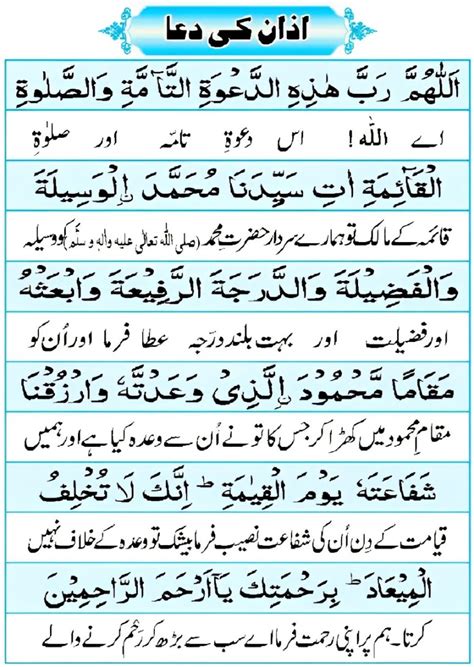 اذان کی دعا
اَللّٰهُمَّ رَبَّ هٰذِهِ الدَّعْوَةِ التَّآمَّةِ وَالصَّلٰوةِ
اے اللہ! اس دعوۃِ تامّہ اور صلوٰۃِ
الْقَآئِمَةِ اٰتِ سَيِّدَنَا مُحَمَّدَ اِ۟لْوَسِيْلَةَ
قائمہ کے مالک تو ہمارے سردار حضرت محمد (صلی اللہ تعالٰی علیہ واٰلہٖ وسلّم) کو وسیلہ
وَالْفَضِيْلَةَ وَالدَّرَجَةَ الرَّفِيْعَةَ وَابْعَثْهُ
اور فضیلت اور بہت بلند درَجہ عطا فرما اور اُن کو
مَقَامًا مَّحْمُوْدَ اِ۟لَّذِىْ وَعَدْتَّهٗ وَارْزُقْنَا
مقامِ محمود میں کھڑا کر جس کا تو نے اُن سے وعدہ کیا ہے اور ہمیں
شَفَاعَتَهٗ يَوْمَ الْقِيٰمَةِ ؕ اِنَّكَ لَا تُخْلِفُ
قیامت کے دِن اُن کی شفاعت نصیب فرما بیشک تو وعدہ کے خلاف نہیں
الْمِيْعَادَ ؕ بِرَحْمَتِكَ يَآاَرْحَمَ الرَّاحِمِيْنَ
کرتا۔ ہم پر اپنی رحمت فرما اے سب سے بڑھ کر رَحْم کرنے والے